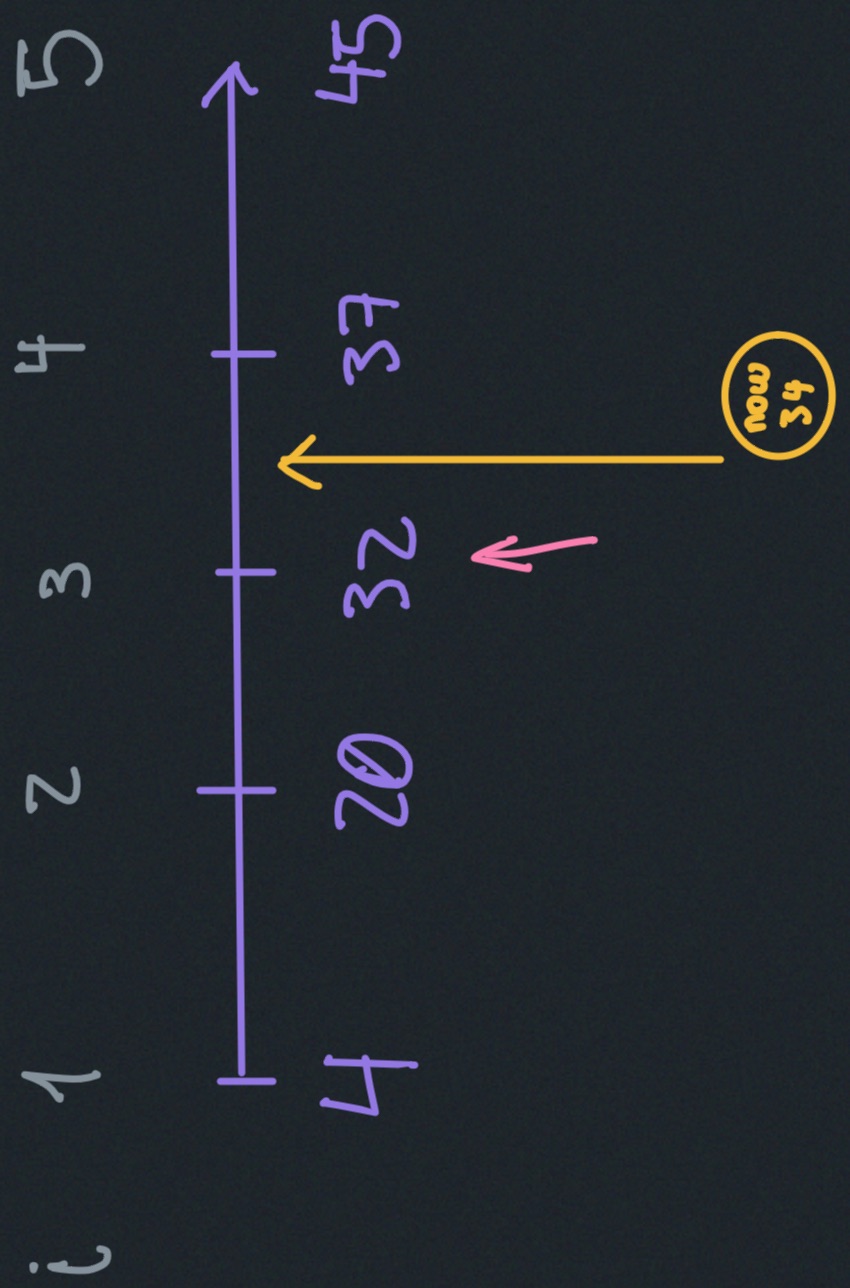 i 1 2 3 4 5
4 20 32 37 45
now
34